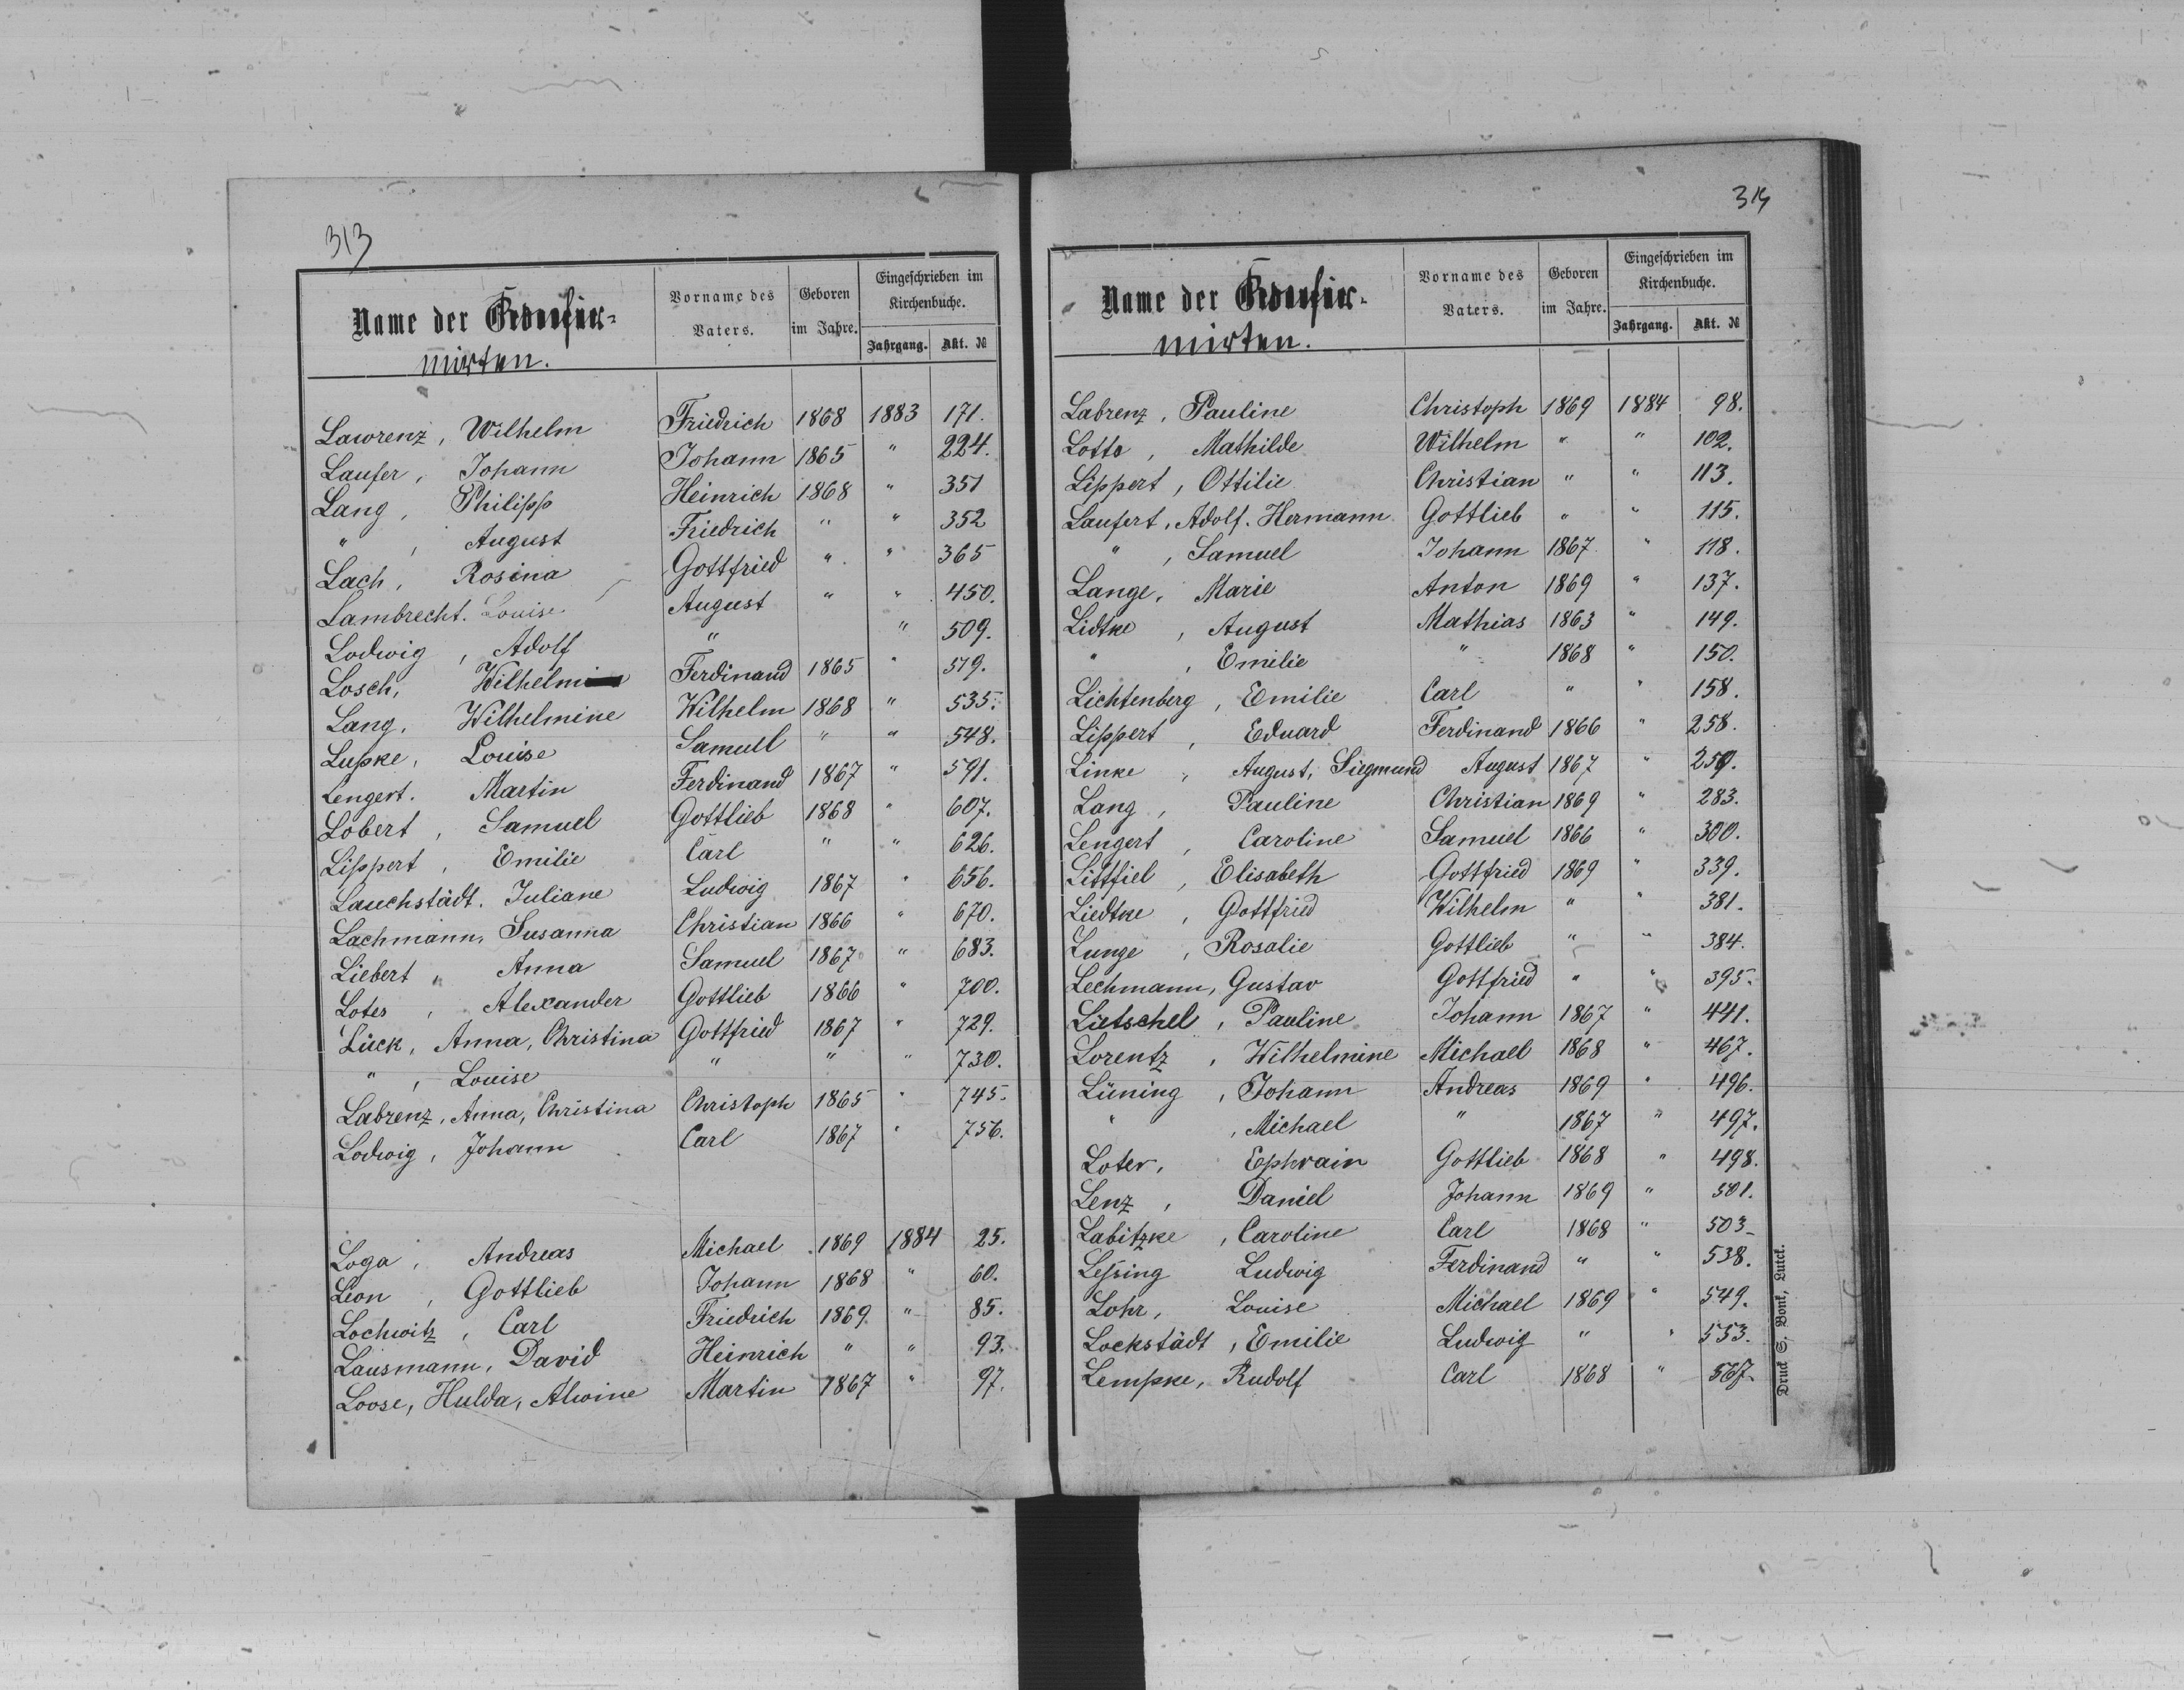 313
Name der Konfir-
mirten.
Vorname des Vaters.
Geboren im Jahre.
Eingeschrieben im Kirchenbuche.
Jahrgang. Akt. №
Lawrenz, Wilhelm Friedrich 1868 1883 171.
Laufer, Johann Johann 1865 " 224.
Lang, Philipp Heinrich 1868 " 351
" , August Friedrich " " 352
Lach, Rosina Gottfried " " 365
Lambrecht. Louise August " " 450.
Lodwig, Adolf " " 509.
Losch, Wilhelm Ferdinand 1865 " 519.
Lang, Wilhelmine Wilhelm 1868 " 535.
Lupke, Louise Samuel " " 548.
Lengert. Martin Ferdinand 1867 " 591.
Lobert, Samuel Gottlieb 1868 " 607.
Lippert, Emilie Carl " " 626.
Lauchstädt. Juliane Ludwig 1867 " 656.
Lachmann, Susanna Christian 1866 " 670.
Liebert, Anna Samuel 1867 " 683.
Loter, Alexander Gottlieb 1866 " 700.
Lück, Anna, Christina Gottfried 1867 " 729.
" , Louise " " " 730.
Labrenz, Anna, Christina Christoph 1865 " 745.
Lodwig, Johann Carl 1867 " 756.
Loga, Andreas Michael 1869 1884 25.
Leon, Gottlieb Johann 1868 " 60.
Lochwitz, Carl Friedrich 1869 " 85.
Lausmann, David Heinrich " " 93.
Loose, Hulda, Alwine Martin 1867 " 97.
314
Name der Konfir-
mirten.
Vorname des Vaters.
Geboren im Jahre.
Eingeschrieben im Kirchenbuche.
Jahrgang. Akt. №
Labrenz, Pauline Christoph 1869 1884 98.
Lotto, Mathilde Wilhelm " " 102.
Lippert, Ottilie Christian " " 113.
Laufert, Adolf. Hermann Gottlieb " " 115.
" , Samuel Johann 1867 " 118.
Lange, Marie Anton 1869 " 137.
Lidtke, August Mathias 1863 " 149.
" , Emilie " 1868 " 150.
Lichtenberg, Emilie Carl " " 158.
Lippert, Eduard Ferdinand 1866 " 258.
Linke, August, Siegmund August 1867 " 259.
Lang, Pauline Christian 1869 " 283.
Lengert, Caroline Samuel 1866 " 300.
Littfiel, Elisabeth Gottfried 1869 " 339.
Liedtke, Gottfried Wilhelm " " 381.
Lunge, Rosalie Gottlieb " " 384.
Lechmann, Gustav Gottfried " " 395.
Lietschel, Pauline Johann 1867 " 441.
Lorentz, Wilhelmine Michael 1868 " 467.
Lüning, Johann Andreas 1869 " 496.
" , Michael " 1867 " 497.
Loter, Ephrain Gottlieb 1868 " 498.
Lenz, Daniel Johann 1869 " 501.
Labitzke, Caroline Carl 1868 " 503
Leßing Ludwig Ferdinand " " 538.
Lohr, Louise Michael 1869 " 549.
Lockstädt, Emilie Ludwig " " 553.
Lempke, Rudolf Carl 1868 " 567.
Druck S. Bonk, Luck.